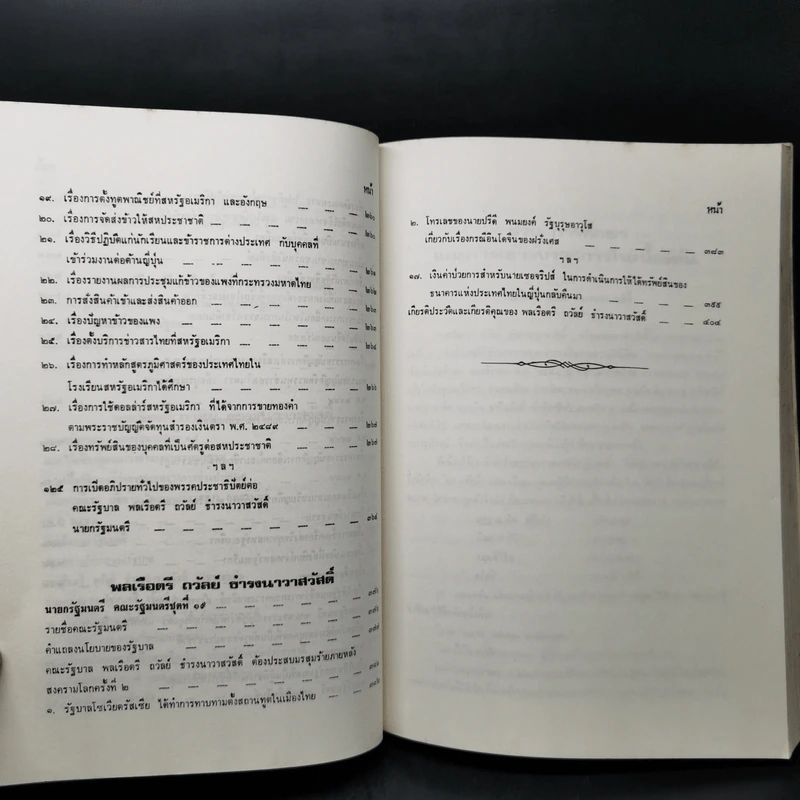 หน้า
๑๙. เรื่องการตั้งทูตพาณิชย์ที่สหรัฐอเมริกา และอังกฤษ ๒๖๐
๒๐. เรื่องการจัดส่งข้าวให้สหประชาชาติ
๒๑. เรื่องวิธีปฏิบัติแก่นักเรียนและข้าราชการต่างประเทศ กับบุคคลที่
เข้าร่วมงานต่อต้านญี่ปุ่น
๒๒. เรื่องรายงานผลการประชุมแก้ข้าวของแพงที่กระทรวงมหาดไทย
๒๓. การสั่งสินค้าเข้าและส่งสินค้าออก
๒๔. เรื่องปัญหาข้าวของแพง
๒๕. เรื่องตั้งบริการข่าวสารไทยที่สหรัฐอเมริกา
๒๖. เรื่องการทำหลักสูตรภูมิศาสตร์ของประเทศไทยใน
โรงเรียนสหรัฐอเมริกาได้ศึกษา ๒๖๖
๒๗. เรื่องการใช้ดอลล่าร์สหรัฐอเมริกา ที่ได้จากการขายทองคำ
ตามพระราชบัญญัติจัดทุนสำรองเงินตรา พ.ศ. ๒๔๘๙ ๒๖๗
๒๘. เรื่องทรัพย์สินของบุคคลที่เป็นศัตรูต่อสหประชาชาติ ๒๖๗
ฯ ล ฯ
๑๒๕ การเปิดอภิปรายทั่วไปของพรรคประชาธิปัตย์ต่อ
คณะรัฐบาล พลเรือตรี ถวัลย์ ธำรงนาวาสวัสดิ์
นายกรัฐมนตรี ๓๖๔
พลเรือตรี ถวัลย์ ธำรงนาวาสวัสดิ์
นายกรัฐมนตรี คณะรัฐมนตรีชุดที่ ๑๙
รายชื่อคณะรัฐมนตรี
คำแถลงนโยบายของรัฐบาล
คณะรัฐบาล พลเรือตรี ถวัลย์ ธำรงนาวาสวัสดิ์ ต้องประสบมรสุมร้ายภายหลัง
สงครามโลกครั้งที่ ๒
๑. รัฐบาลโซเวียตรัสเซีย ได้ทำการทาบทามตั้งสถานทูตในเมืองไทย
หน้า
๒. โทรเลขของนายปรีดี พนมยงค์ รัฐบุรุษอาวุโส
เกี่ยวกับเรื่องกรณีอินโดจีนของฝรั่งเศส ๓๘๓
ฯ ล ฯ
๑๗. เงินค่าป่วยการสำหรับนายเซอจริปส์ ในการดำเนินการให้ได้ทรัพย์สินของ
ธนาคารแห่งประเทศไทยในญี่ปุ่นกลับคืนมา ๓๙๕
เกียรติประวัติและเกียรติคุณของ พลเรือตรี ถวัลย์ ธำรงนาวาสวัสดิ์ ๔๐๔